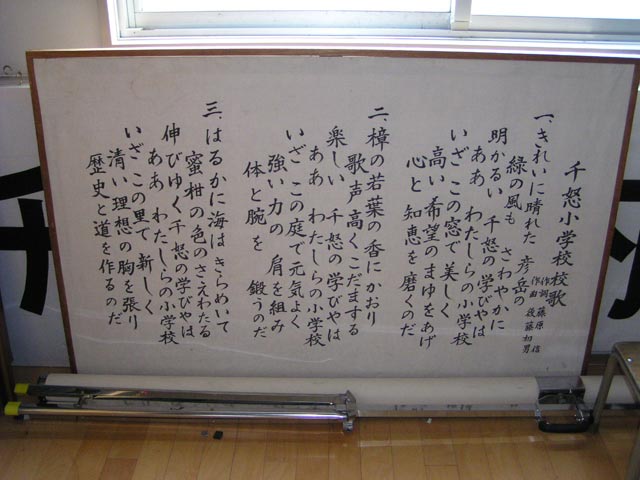 千怒小学校校歌
作詞 藤原 信
作曲 後藤初男
一、きれいに晴れた 彦岳の
緑の風も さわやかに
明かるい 千怒の学びやは
ああ わたしらの小学校
いざ この窓で 美しく
高い希望のまゆをあげ
心と 知恵を 磨くのだ
二、樟の若葉の香にかおり
歌声高くこだまする
楽しい 千怒の学びやは
ああ わたしらの小学校
いざ この庭で 元気よく
強い力の 肩を組み
体と 腕を 鍛うのだ
三、はるかに海はきらめいて
蜜柑の色のさえわたる
伸びゆく千怒の学びやは
ああ わたしらの小学校
いざ この里で 新しく
清い理想の胸を張り
歴史と道を作るのだ